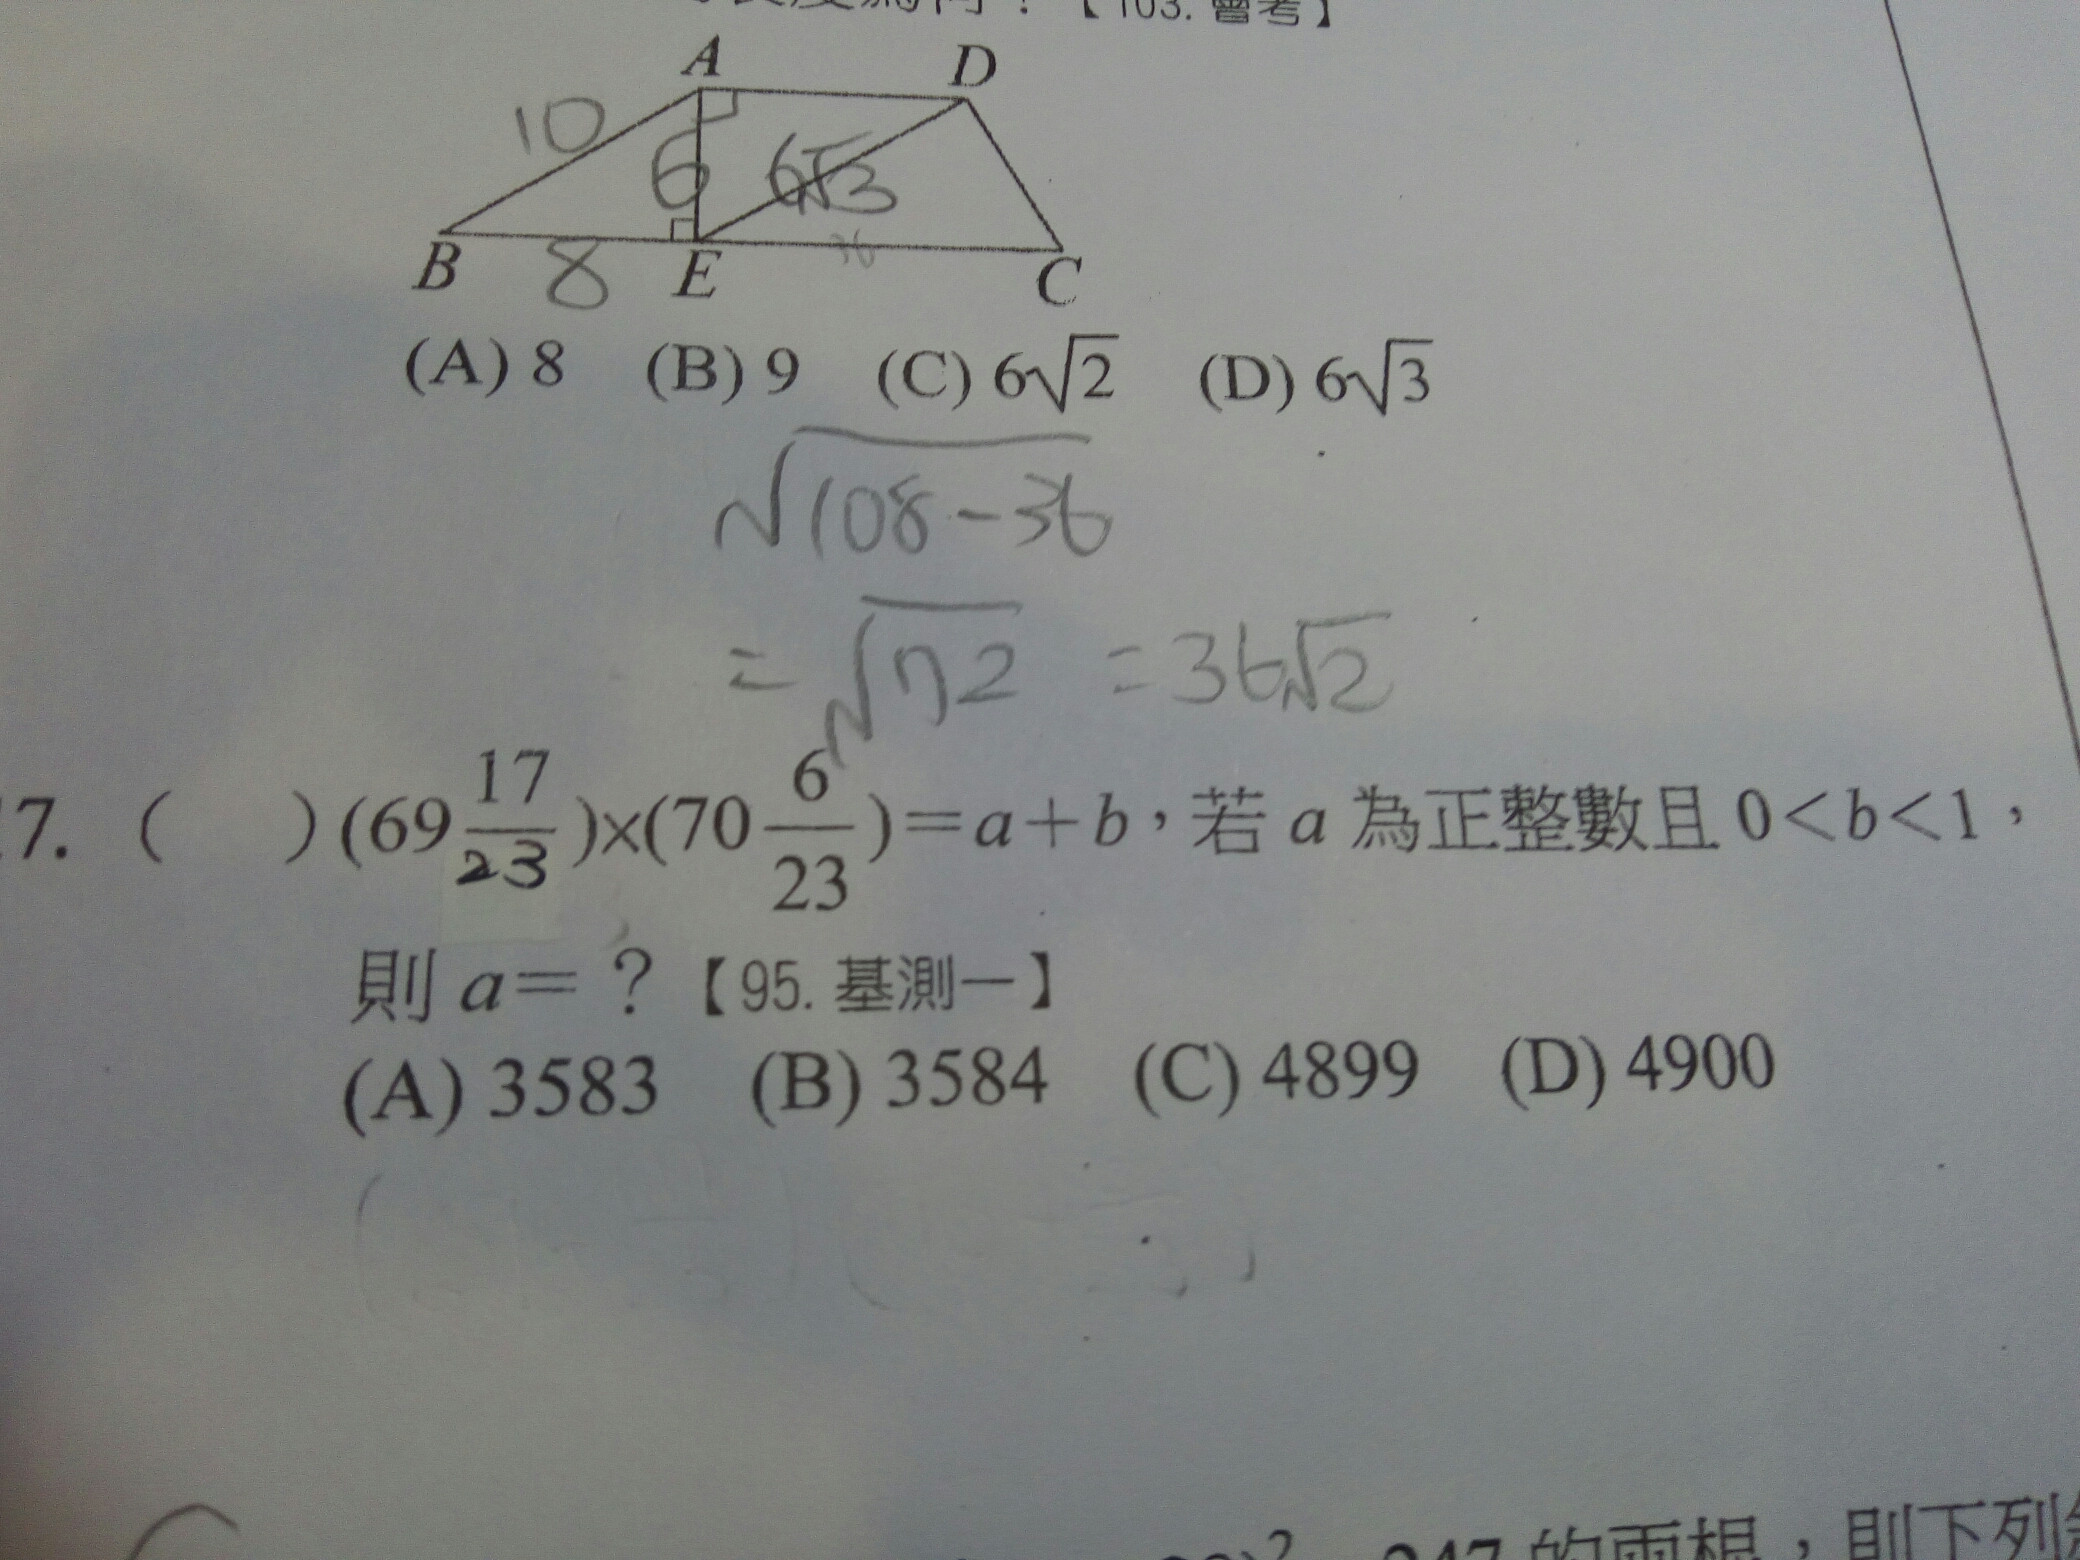 【103. 會考】
A
D
10
6
6√3
36
B
8
E
C
(A) 8 (B) 9 (C) 6√2 (D) 6√3
√108-36
= √72 = 36√2
7. ( ) (69 17/23)×(70 6/23)=a+b,若 a 為正整數且 0<b<1,
則 a=?【95. 基測一】
(A) 3583 (B) 3584 (C) 4899 (D) 4900
247 的兩根,則下列